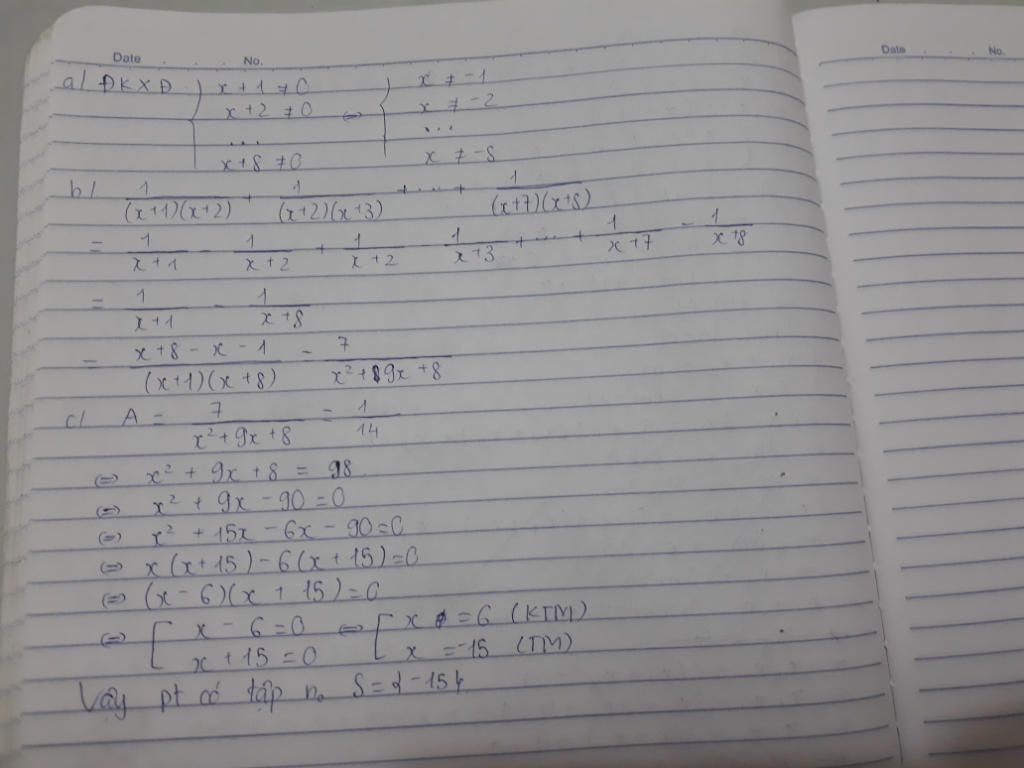 Date . . . No.
Date . . . No.
a) ĐKXĐ { x + 1 ≠ 0 { x ≠ -1
x + 2 ≠ 0 ⇔ x ≠ -2
... ...
x+8 ≠ 0 x ≠ -8
b) 1/((x+1)(x+2)) + 1/((x+2)(x+3)) + ... + 1/((x+7)(x+8))
= 1/(x+1) - 1/(x+2) + 1/(x+2) - 1/(x+3) + ... + 1/(x+7) - 1/(x+8)
= 1/(x+1) - 1/(x+8)
= (x+8-x-1)/((x+1)(x+8)) = 7/(x²+9x+8)
c) A = 7/(x²+9x+8) = 1/14
⇔ x² + 9x + 8 = 98
⇔ x² + 9x - 90 = 0
⇔ x² + 15x - 6x - 90 = 0
⇔ x(x+15) - 6(x+15) = 0
⇔ (x-6)(x+15) = 0
⇔ [ x - 6 = 0 ⇔ [ x = 6 (KTM)
x + 15 = 0 x = -15 (TM)
Vậy pt có tập n₀ S = {-15}